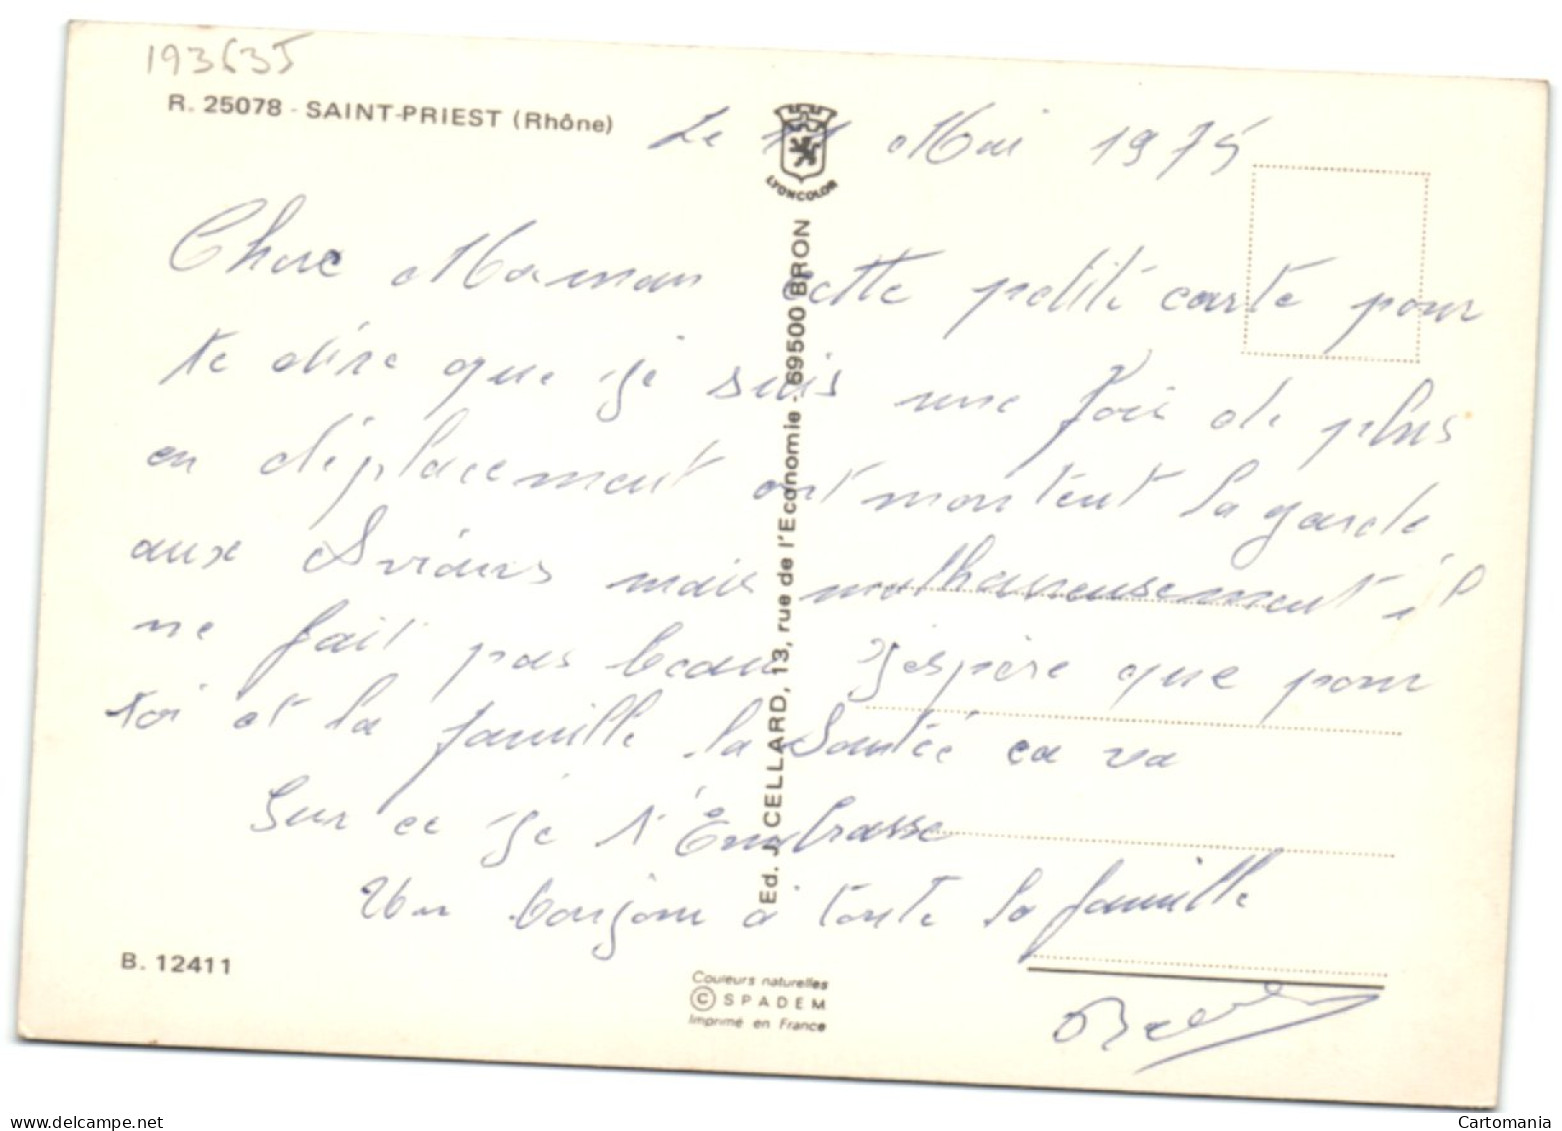 193635
R. 25078 - SAINT-PRIEST (Rhône)
Le 11 Mai 1975
LYONCOLOR
Chere Maman cette petite carte pour
te dire que je suis une fois de plus
en déplacement ont montent la garde
aux Avions mais malhaureusement il
ne fait pas beau j'espère que pour
toi et la famille la Santée ca va
Sur ce je t'Embrasse
Un bonjour à toute la famille
Ed. J. CELLARD, 13, rue de l'Economie - 69500 BRON
B. 12411
Couleurs naturelles
© SPADEM
Imprimé en France
www.delcampe.net
Cartomania